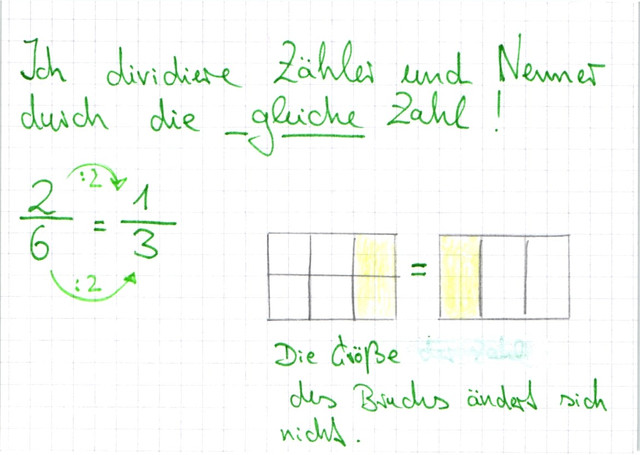 Ich dividiere Zähler und Nenner
durch die gleiche Zahl!
:2
2/6 = 1/3
:2
=
Die Größe
des Bruchs ändert sich
nicht.